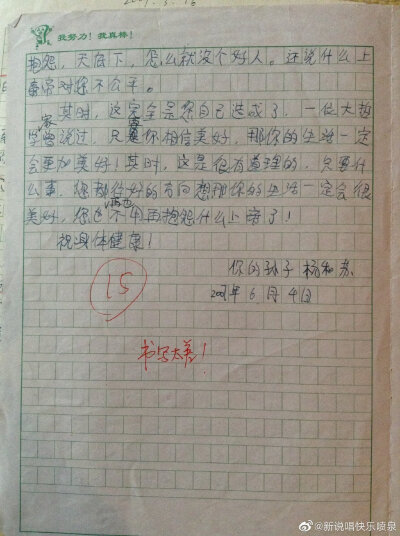 2007.5.16
我努力！我真棒！
抱怨，天底下，怎么就没个好人。还说什么上
帝对你不公平。
其时，这完全是你自己造成了，一位大哲
学家曾说过，只要你相信美好，那你的生活一定
会更加美好！其时，这是很有道理的，只要什
么事，您都往好的方向想那你的生活一定会很
美好，您也不用再抱怨什么上帝了！
祝身体健康！
你的孙子 杨和苏
2007年6月4日
15
书写太差！
@新说唱快乐喷泉